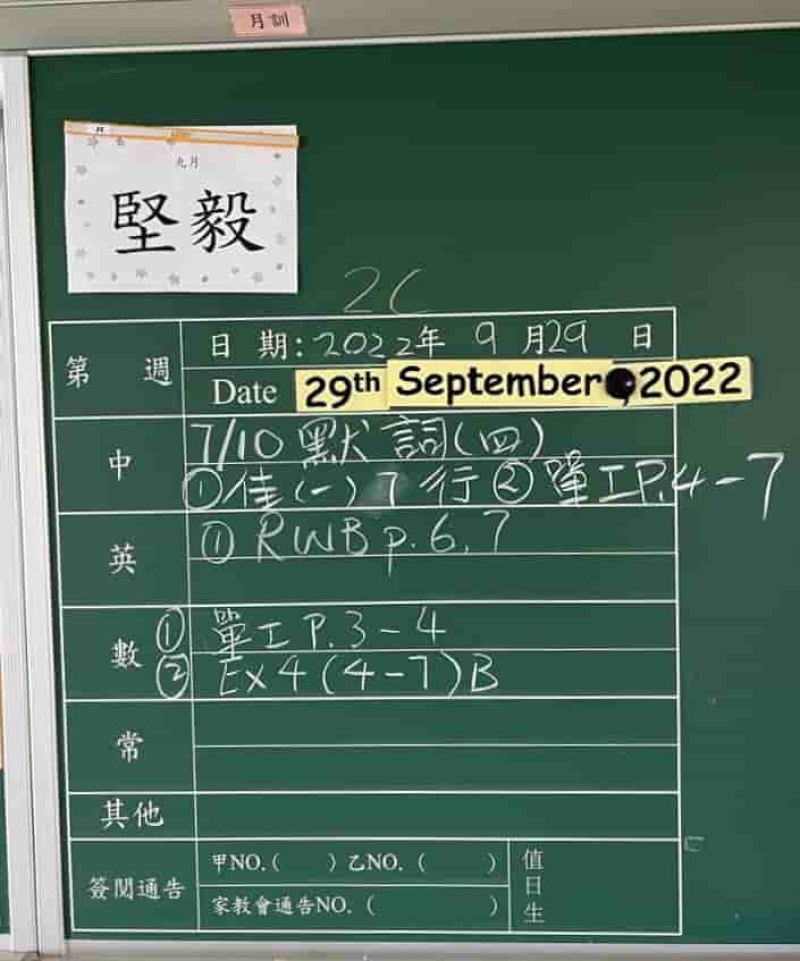 月訓
九月
堅毅
2C
第 週
日 期:2022年 9 月29 日
Date 29th September, 2022
中
7/10 默 詞(四)
①佳(一)7行 ②單工P.4-7
英
① RWB p.6,7
數
① 單工 P.3-4
② Ex 4 (4-7) B
常
其他
簽閱通告
甲NO.( ) 乙NO. ( )
家教會通告NO. ( )
值日生